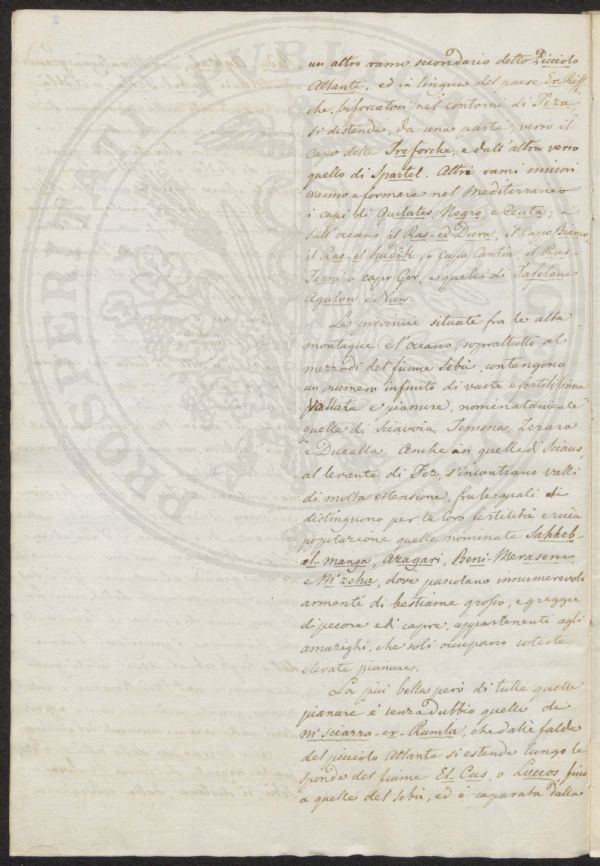 2
un altro ramo secondario detto Picciolo
Atlante, ed in lingua del paese Er-Riff
che, biforcatosi nel contorni di Teza
si distende, da una parte, verso il
Capo dette Treforche, e dall'altra verso
quello di Spartel. Altri rami minori
vanno a formare nel Mediterraneo
i capi di Quilates, Negro, e Ceuta; e
sull'oceano il Ras-ed-Dura, il Capo Bianco
il Ras-el o capo Cantin il Ras-
o capo Ger, e quelli di Tafelane
Aguton e Nun.
Le provincie situate fra le alte
montagne e l'oceano, soprattutto al
mezzodì del fiume Sebù, contengono
un numero infinito di vaste e fertilissime
vallate e pianure, nominatamente
quelle di Sciavoia, Temsna, Terara
e Ducalla. Anche in quelle di Sciaus,
al levante di Fez, s'incontrano valli
di molta estensione, fra le quali si
distinguono per la loro fertilità e ricca
popolazione quelle nominate Sahheb-
el-marga, Azagari, Beni-Merasem
e M'zeha, dove pascolano innumerevoli
armenti di bestiame grosso, e greggie
di pecore e di capre, appartenente agli
amazighi, che soli occupano coteste
elevate pianure.
La più bella però di tutte quelle
pianure è senza dubbio quelle de
M'sciarra-er-Ramla, che dalle falde
del picciolo Atlante si estende lungo le
sponde del fiume El-Cus, o Luccos, fino
a quelle del Sebù, ed è separata dalla
PROSPERITATI PUBLICAE